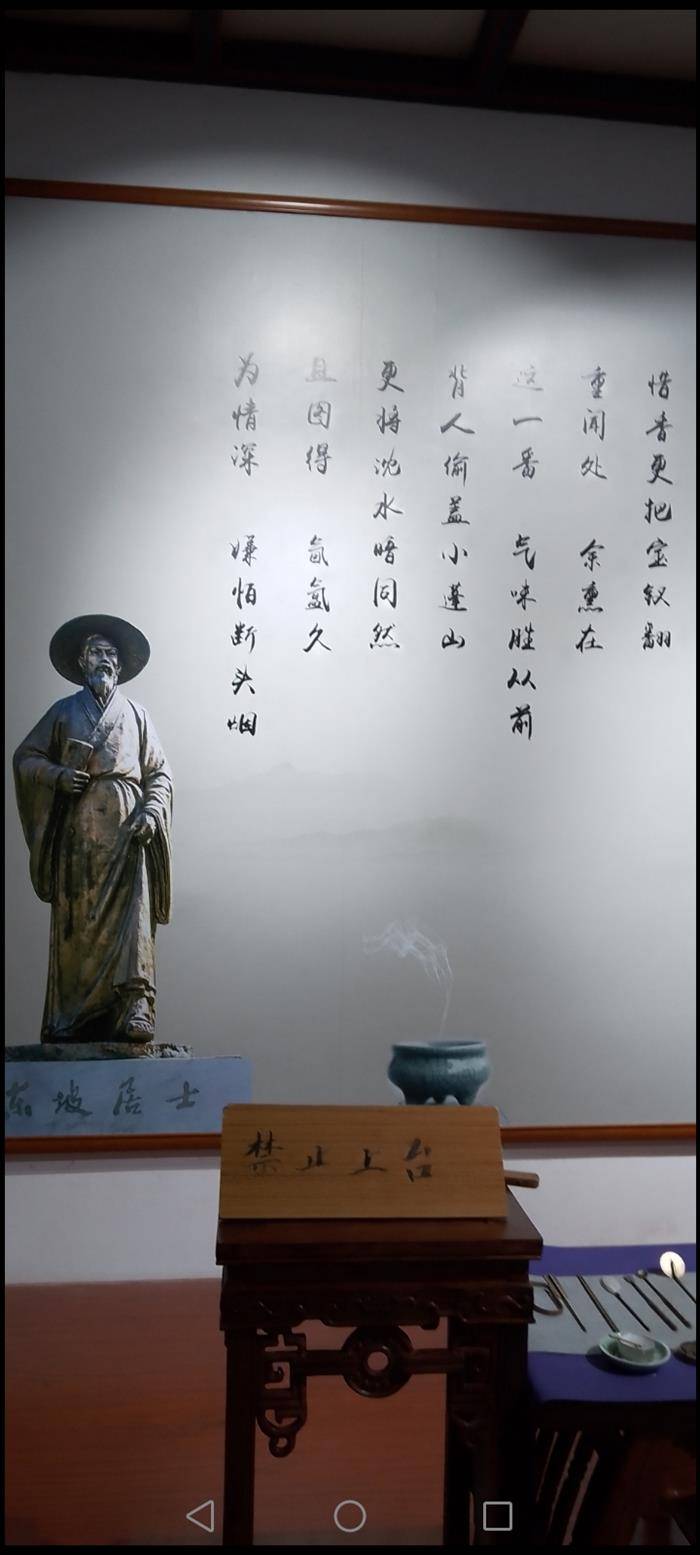 惜香更把宝钗翻
重闻处 余熏在
这一番 气味胜从前
背人偷盖小蓬山
更将沈水暗同然
且图得 氤氲久
为情深 嫌怕断头烟
东坡居士
禁止上台